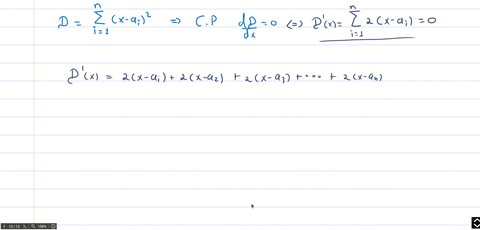 D = n∑i=1 (x-aᵢ)² ⇒ C.P dD/dx = 0 ⇔ D'(x) = n∑i=1 2(x-aᵢ) = 0
D'(x) = 2(x-a₁) + 2(x-a₂) + 2(x-a₃) + ···· + 2(x-aₙ)